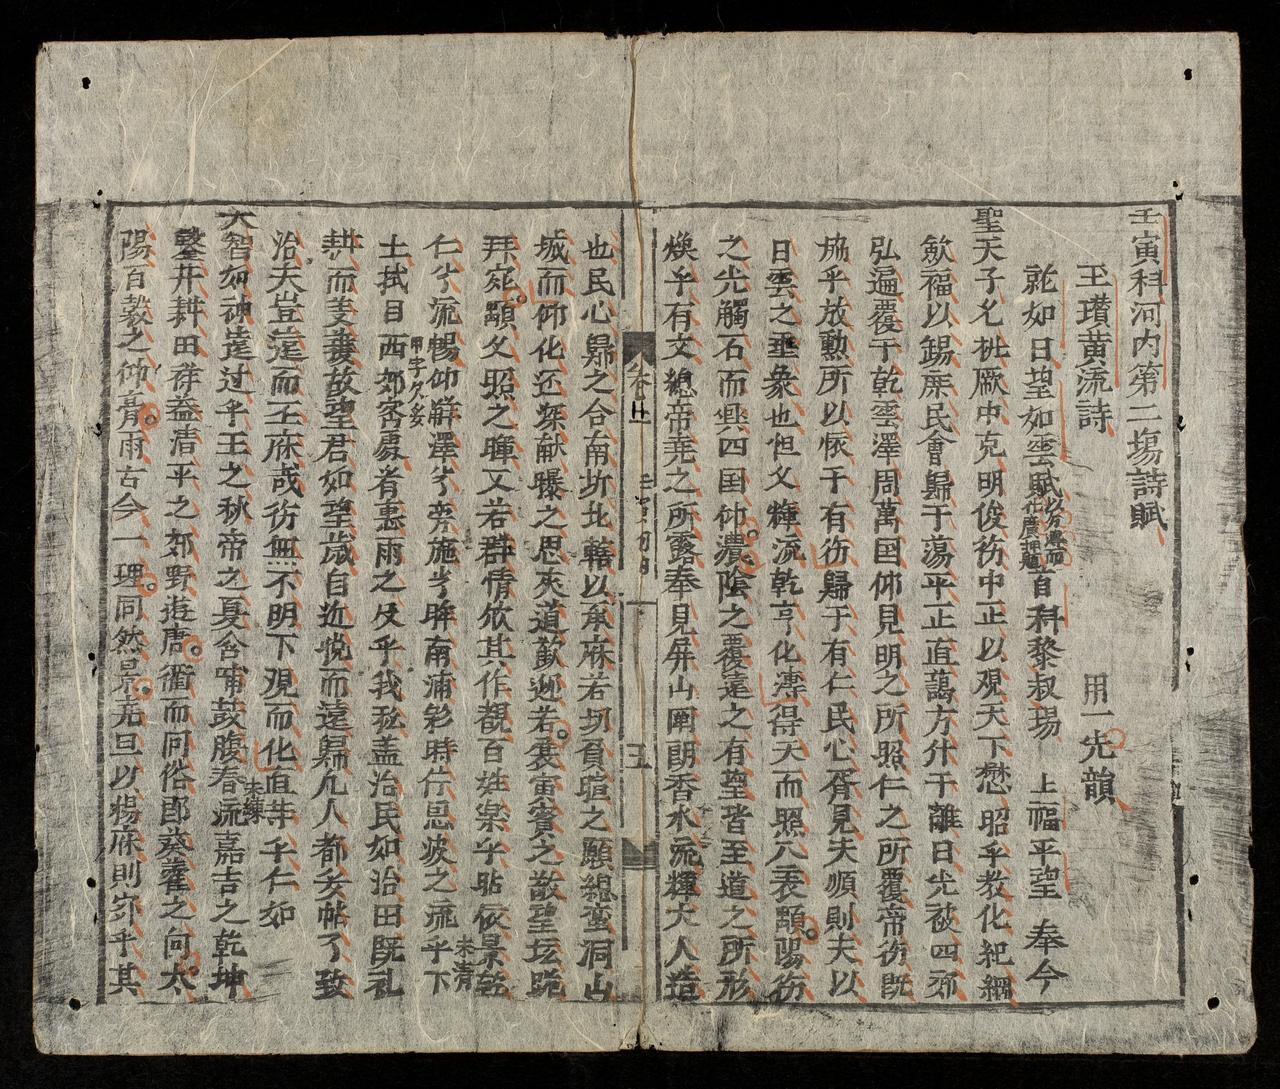 壬寅科河内第二塲詩賦
王瓚黄流詩 用一先韻
就如日望如雲賦 以分與而 花廣評題 首科黎叔場 上福平望 奉今
聖天子允桃厥中克明俊彷中正以观天下懋昭乎教化紀綱
歛福以錫庶民會歸于蕩平正直藹方升于離日光被四郊
弘遍覆于乾雲澤周萬国仰見明之所照仁之所覆帝彷既
施乎放勳所以怀于有彷歸于有仁民心胥見夫順則夫以
日雲之垂象也怛文輝流乾亨化溥得天而照八表顒陽彷
之光觸石而興四国仰濃陰之覆遠之有望皆至道之所形
煥乎有文緫帝堯之所露奉見屏山闓朗香水流輝大人造
也民心歸之合南圻北轄以承庥若切負暄之願緫蛮洞山
城而仰化还深献曝之思夾道歡迎若寅賓之敬望坛跪
拜宛顒文照之暉又若群情欣其作覩百姓楽乎貼依景乾
仁兮流暢仰觧澤兮旁施兮眸南浦彩時佇思波之流乎下 未清
士拭目西郊 甲字欠妥 客處者惠雨之及乎我並盖治民如治田既礼
耕而美養故望君如望歲自近悅而遠歸凢人都妥帖了致
治夫豈遠而王庥或彷無不明下观而化直 未練 乎仁如
大智如神遠过乎王之秋帝之夏含哺鼓腹春流嘉吉之乾坤
鑿井耕田祥益清平之郊野遊唐衢而同俗郎葵藿之向太
陽百穀之仰膏雨古今一理同然景嘉旦以楊庥則穷乎其
卷廿
三